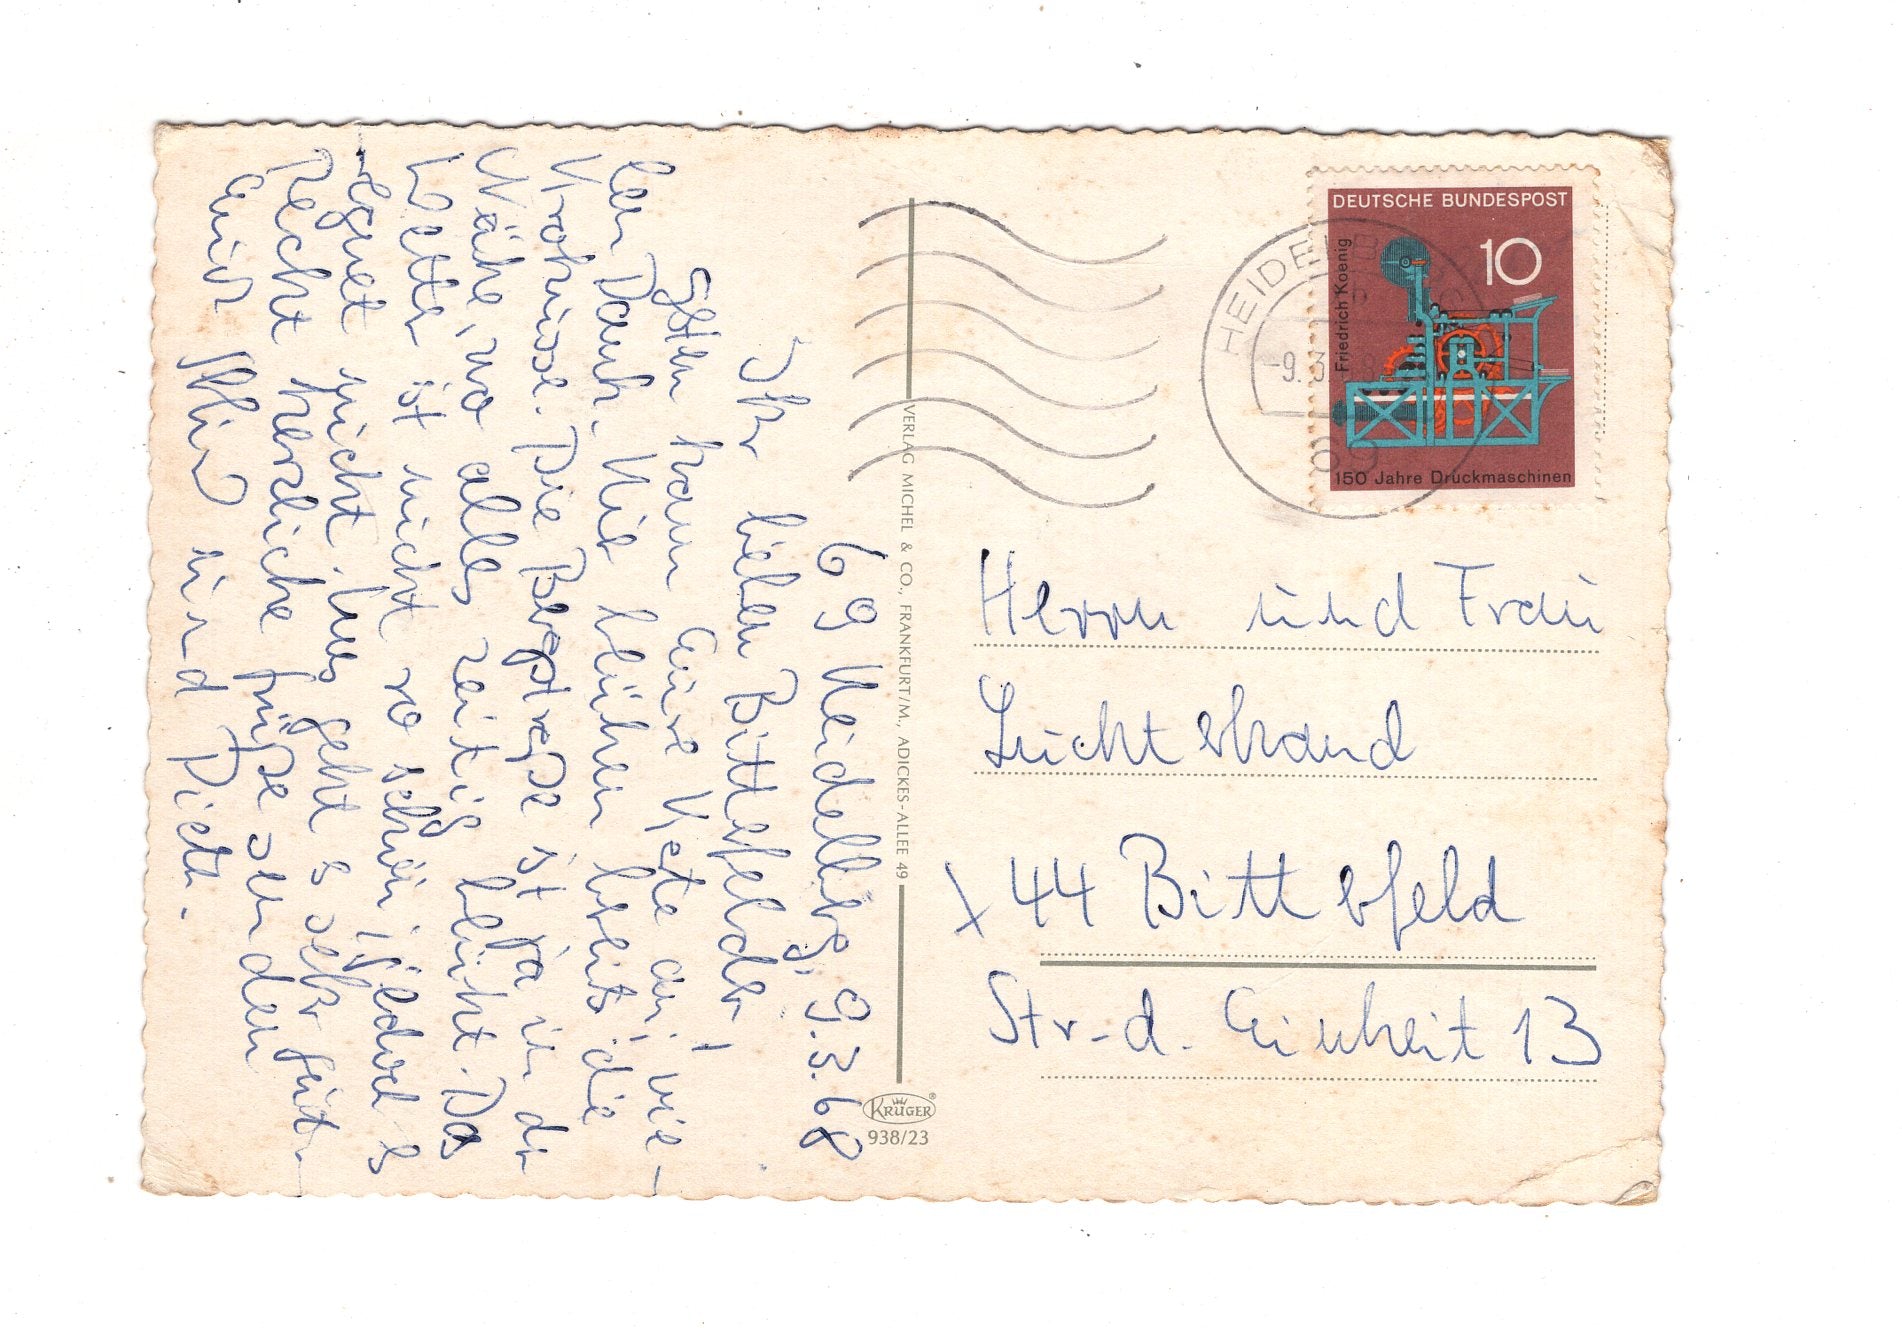 69 Heidelberg, 9.3.68
Ihr lieben Bitterfelder!
Gestern kam Eure Karte an, vie-
len Dank. Hier blühen bereits die
Krokusse. Die Bergstraße ist ja in der
Nähe, wo alles zeitig blüht. Das
Wetter ist nicht so schön, jedoch es
regnet nicht. Uns geht es sehr gut.
Recht herzliche Grüße senden
Euch und Dieter.
VERLAG MICHEL & CO., FRANKFURT/M., ADICKES-ALLEE 49
KRÜGER®
938/23
HEIDELBERG
-9.3.68
69
DEUTSCHE BUNDESPOST
10
Friedrich Koenig
150 Jahre Druckmaschinen
Herrn und Frau
Leichtstrand
X 44 Bitterfeld
Str. d. Einheit 13